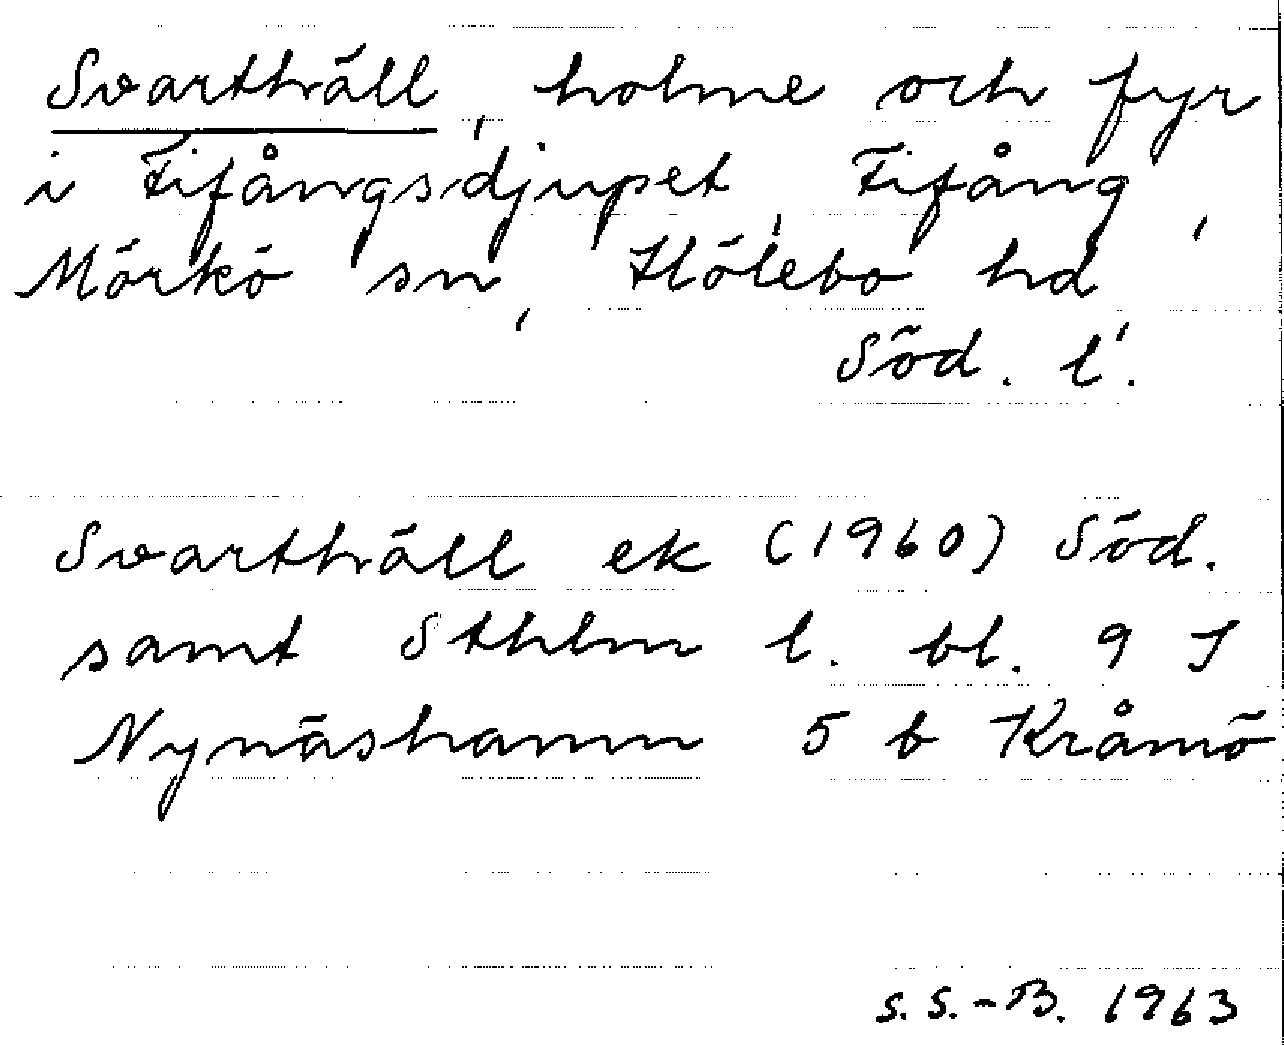 Svarthäll, holme och fyr
i Fifångsdjupet, Fifång,
Mörkö sn, Hölebo hd
Söd. l.
Svarthäll ek (1960) Söd.
samt Sthlm l. bl. 9 I
Nynäshamn 5 b Kråmö
S.S.-B. 1963